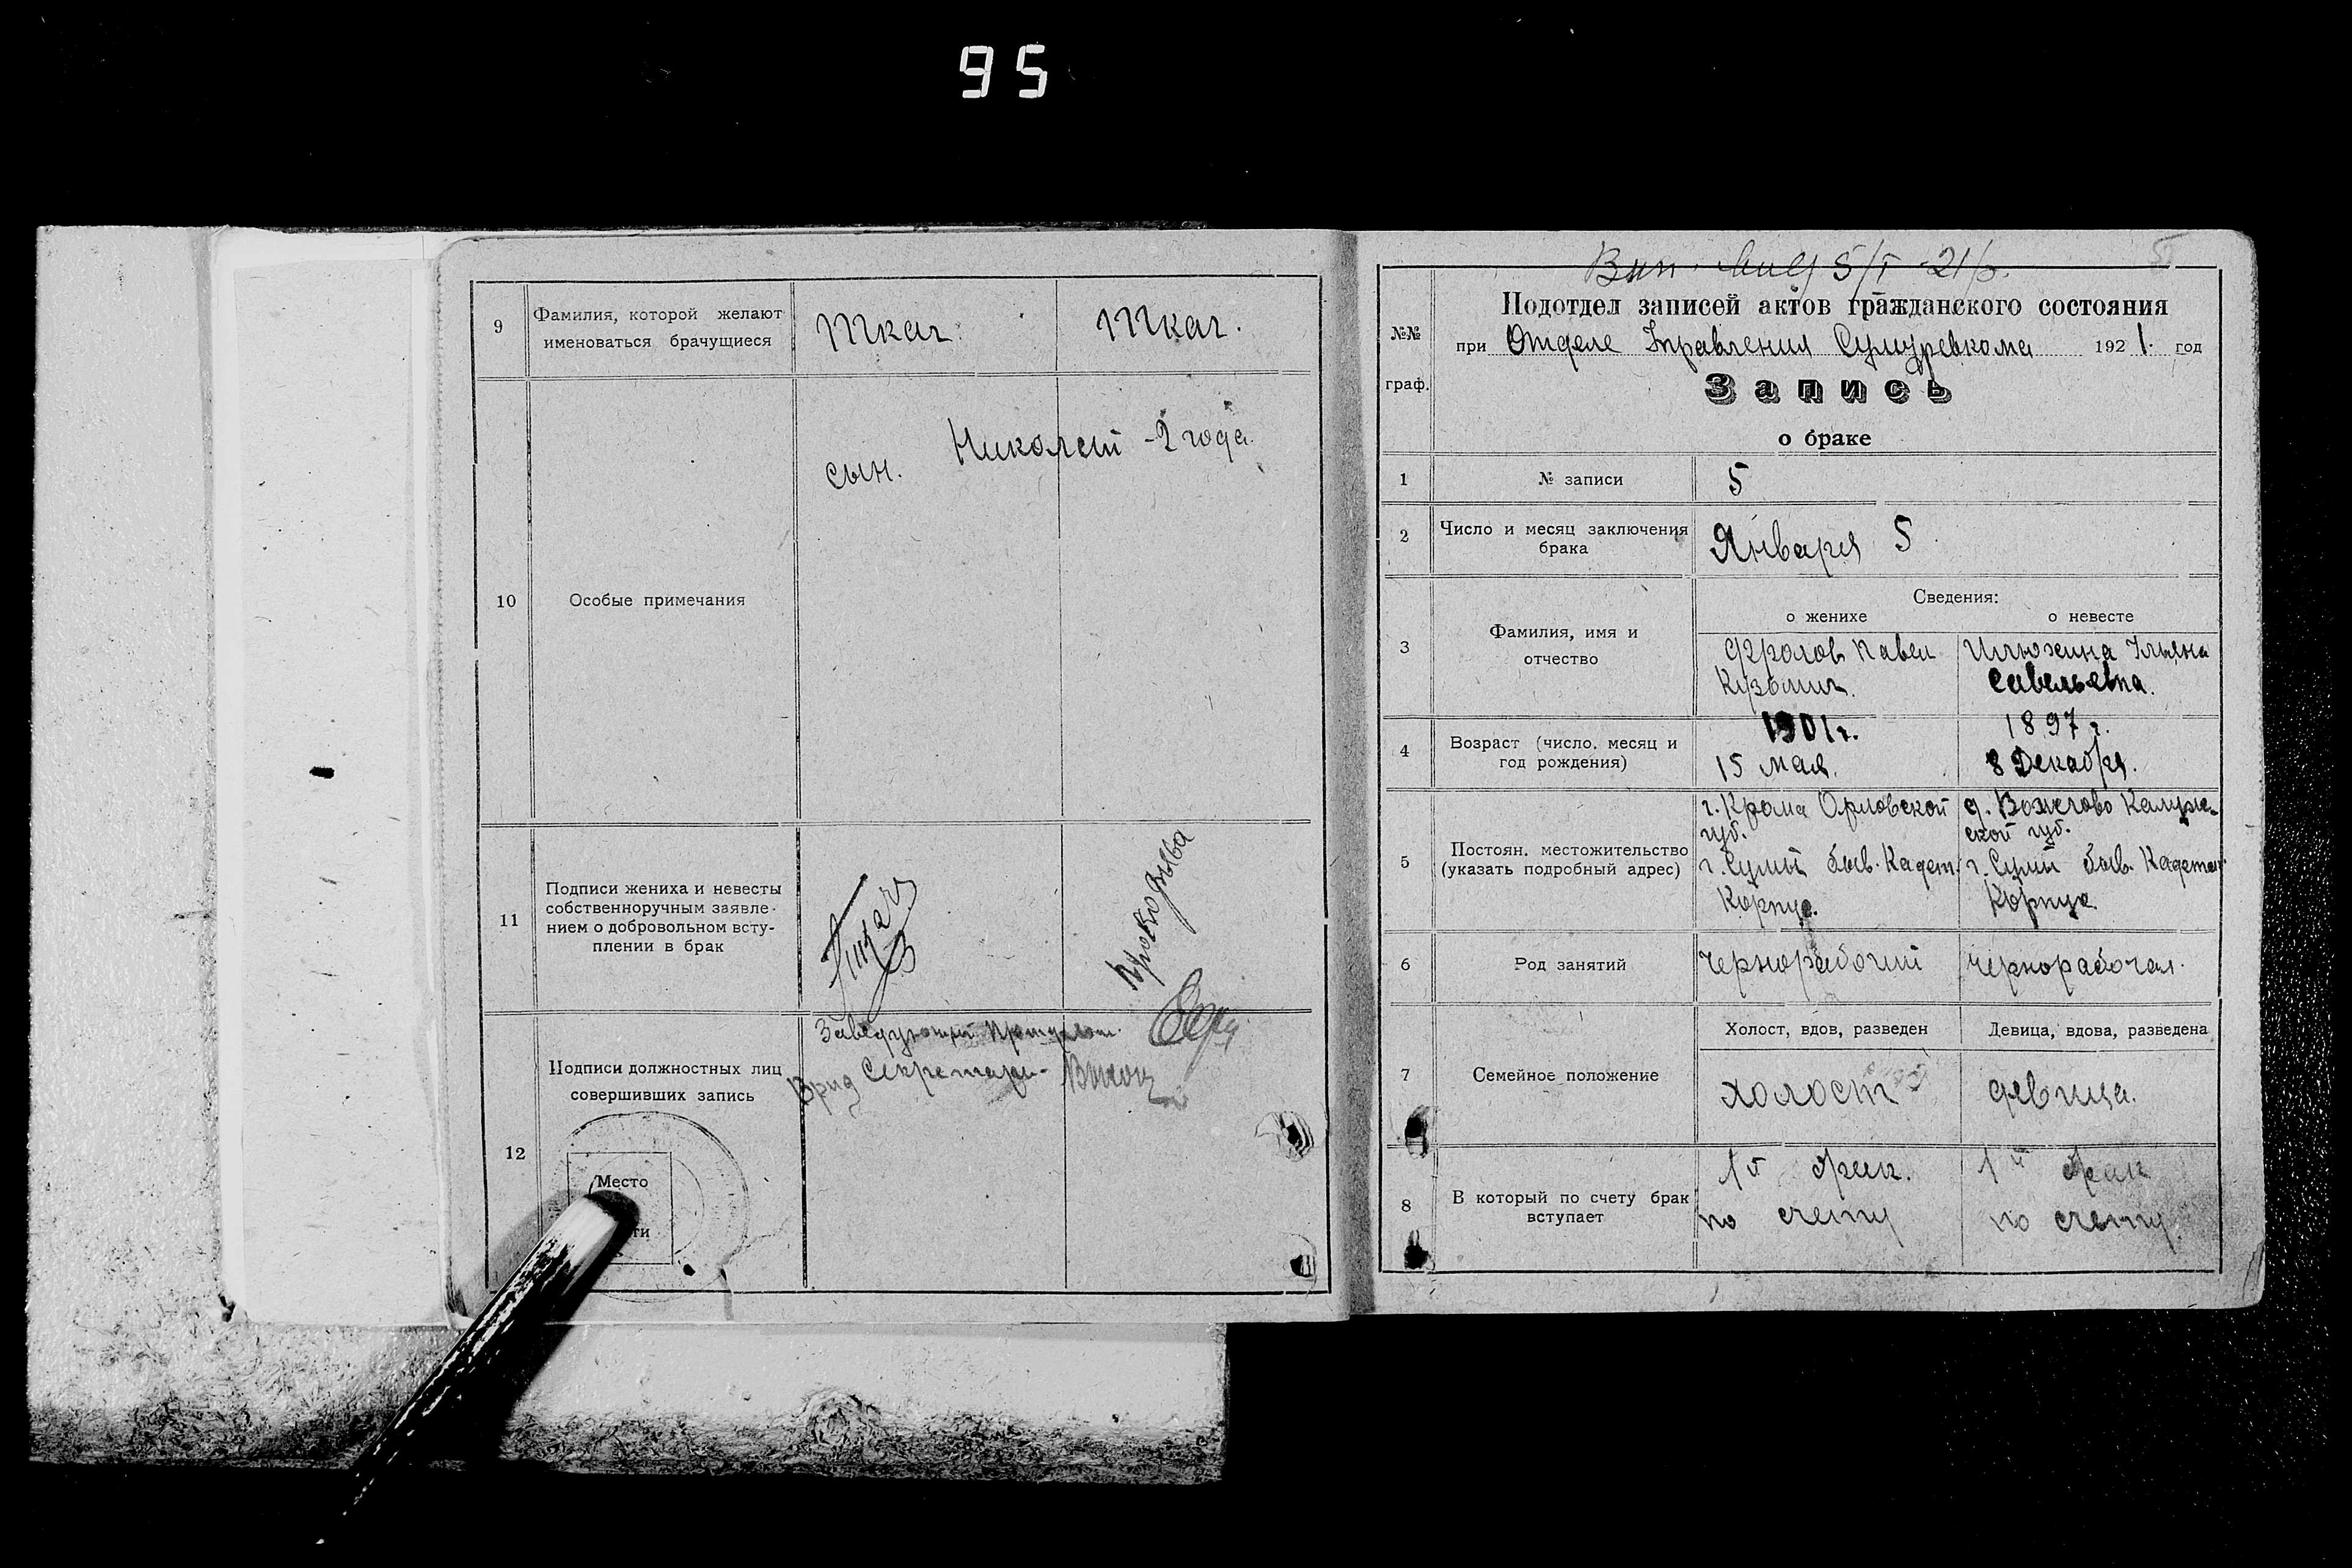 95
9
Фамилия, которой желают
именоваться брачущиеся
Ткач.
Ткач.
10
Особые примечания
сын. Николай - 2 года.
11
Подписи жениха и невесты
собственноручным заявле-
нием о добровольном всту-
плении в брак
Ткач
12
Подписи должностных лиц
совершивших запись
Заведующий
Врид Секретаря
Место
ти
5/I 21
№№
граф.
Подотдел записей актов гражданского состояния
при Отделе Управления Сумуревкома 1921. год
Запись
о браке
1
№ записи
5
2
Число и месяц заключения
брака
Января 5
3
Фамилия, имя и
отчество
Сведения:
о женихе
о невесте
Фролов Павел
Кузьмич.
Илюхина Ульяна
Савельевна.
4
Возраст (число, месяц и
год рождения)
1901 г.
15 мая.
1897 г.
8 Декабря.
5
Постоян. местожительство
(указать подробный адрес)
г. Крома Орловской
губ.
г. Сумы быв. Кадет.
Корпус.
д. Калуж-
ской губ.
г. Сумы быв. Кадетск.
Корпус.
6
Род занятий
Чернорабочий
Чернорабочая.
7
Семейное положение
Холост, вдов, разведен
Девица, вдова, разведена
холост
девица.
8
В который по счету брак
вступает
1й брак.
по счету
1й брак
по счету